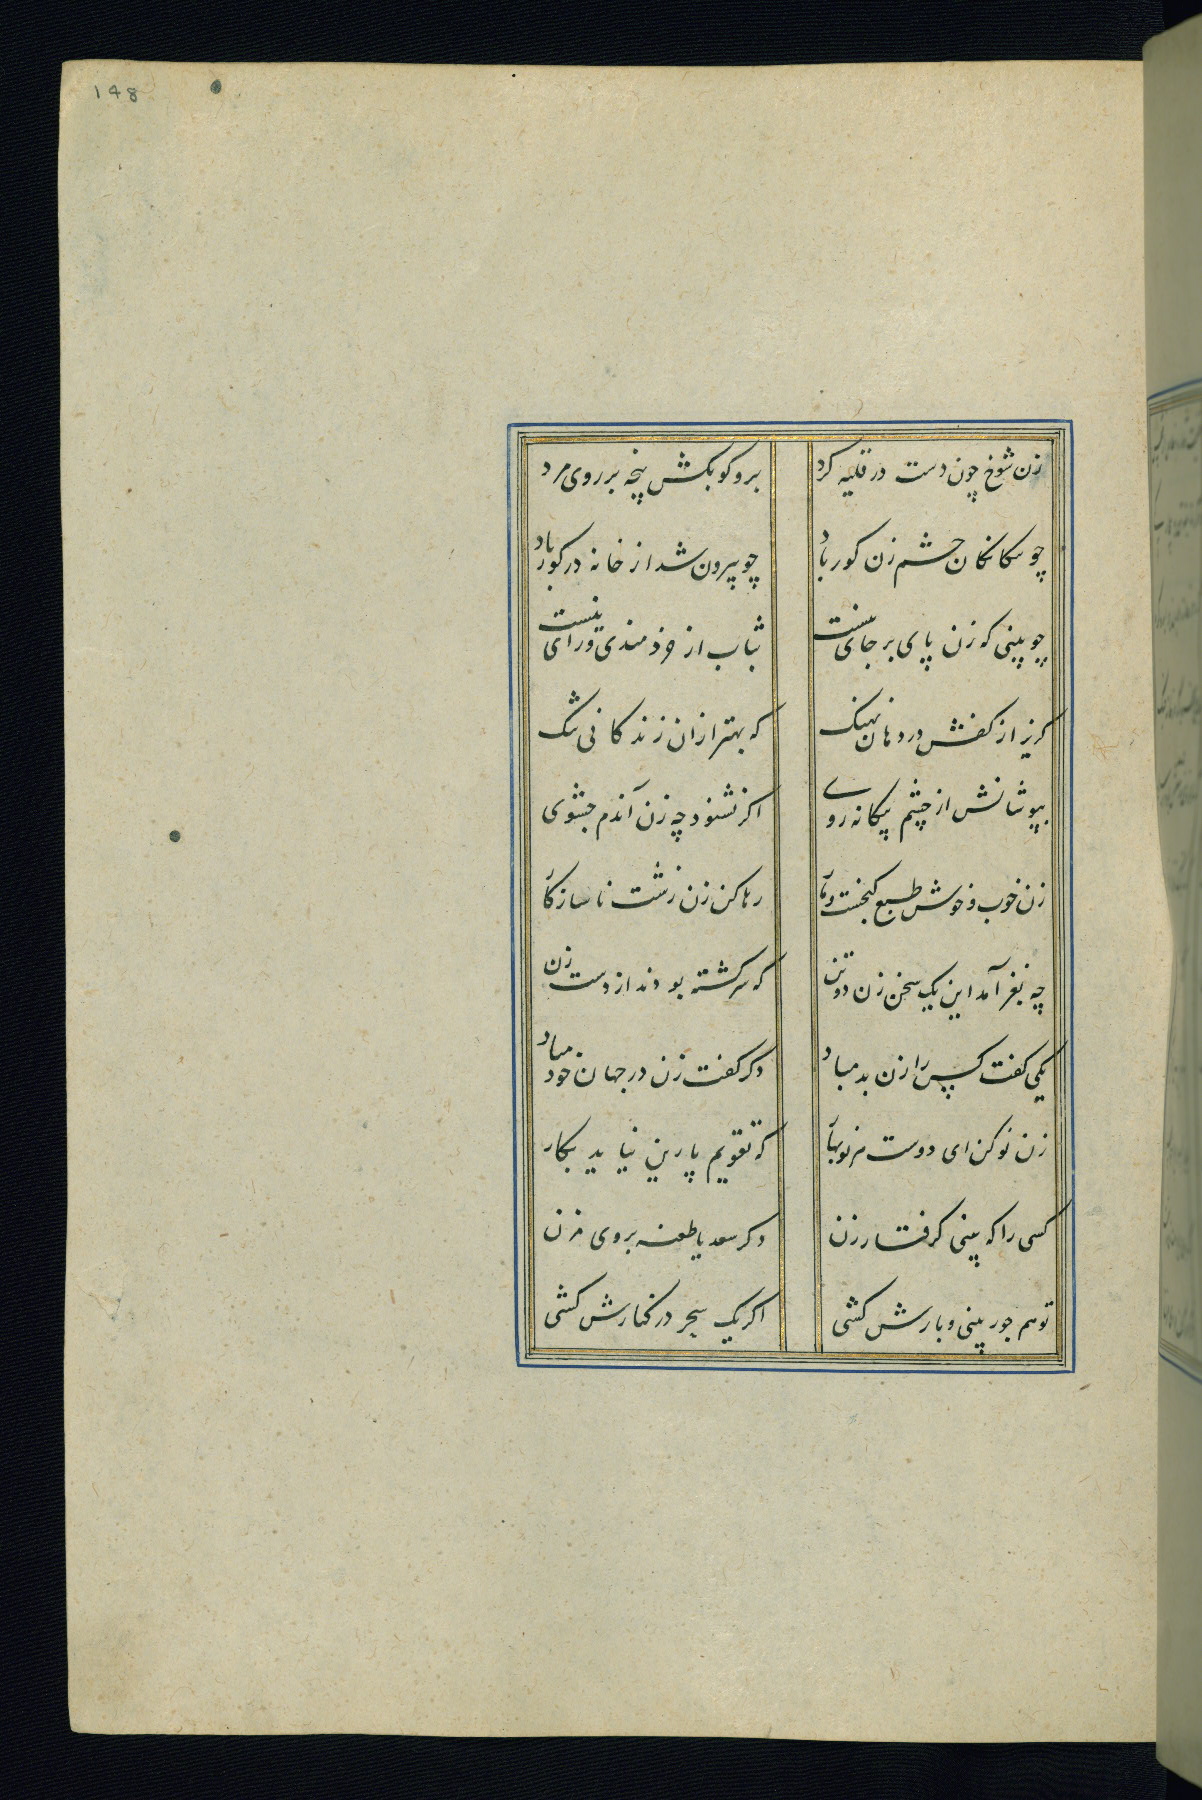 ۱۴۸
زن شوخ چون دست در قلیه کرد برو کو بکش پنجه بر روی مرد
چو بیکانکان چشم زن کور باد چو بیرون شد از خانه در کور باد
چو بینی که زن پای بر جای نیست ثبات از خردمندی و رای نیست
کریز از کفش در دهان نهنک که بهتر از آن زندکانی بننک
بپوشانش از چشم بیکانه روی اکر نشنود چه زن آندم چه شوی
زن خوب و خوش طبع کنجست و مار رها کن زن زشت ناسازکار
چه نغز آمد این یک سخن زن دو تن که سرکشته بودند از دست زن
یکی کفت کس را زن بد مباد دکر کفت زن در جهان خود مباد
زن نو کن ای دوست هر نوبهار که تقویم پارین نیاید بکار
کسی را که بینی کرفتار زن دکر سعدیا طعنه بروی مزن
تو هم جور بینی و بارش کشی اکر یک سحر در کنارش کشی